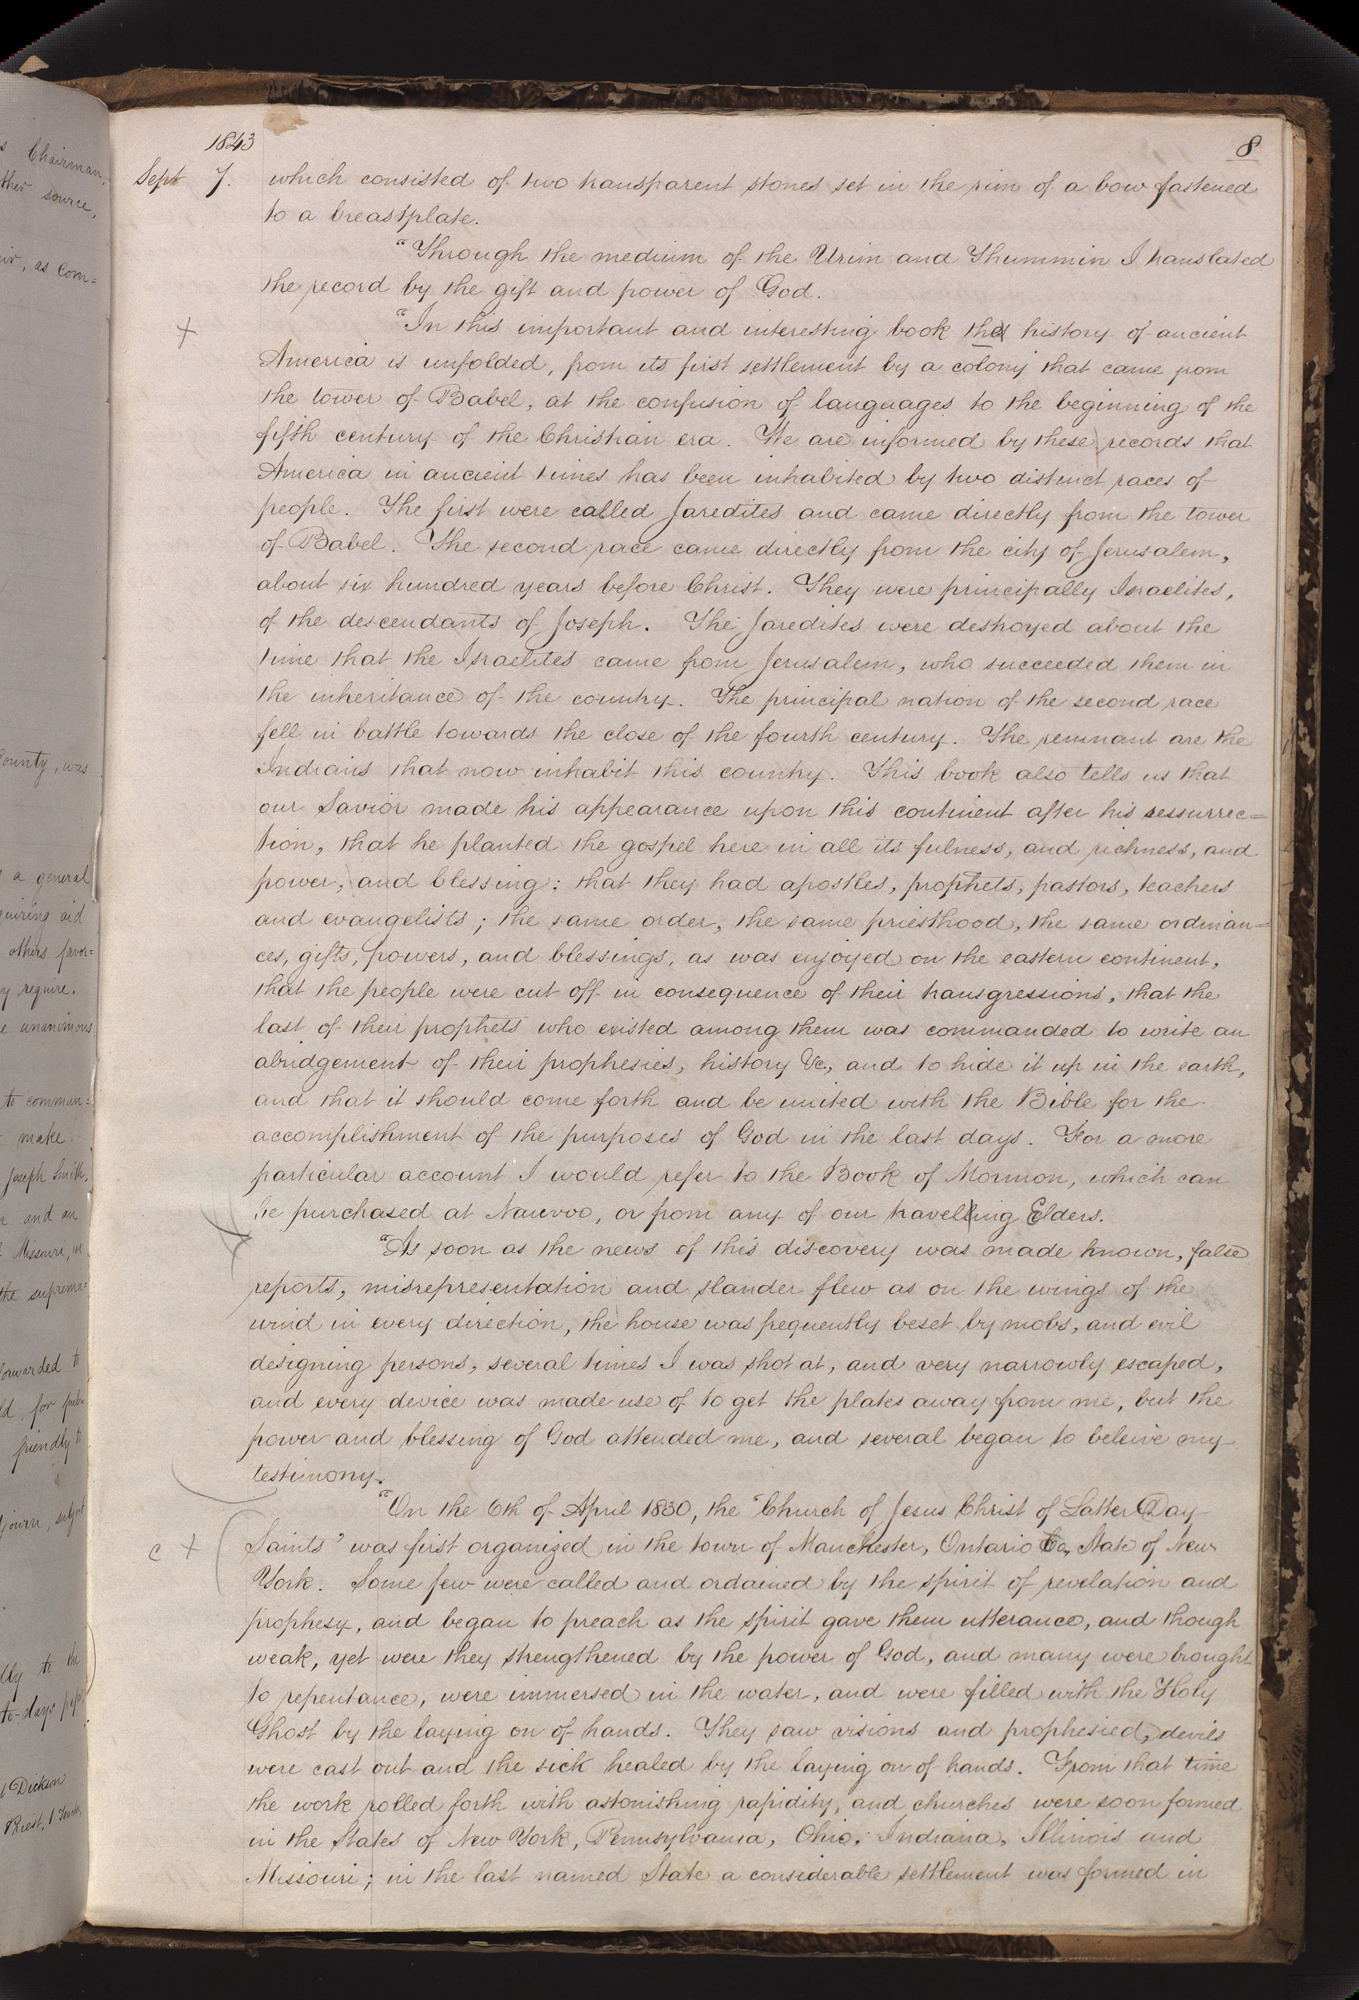 1843
8
Sept 7. which consisted of two transparent stones set in the rim of a bow fastened
to a breastplate.
"Through the medium of the Urim and Thummin I translated
the record by the gift and power of God.
"In this important and interesting book the history of ancient
America is unfolded, from its first settlement by a colony that came from
the tower of Babel, at the confusion of languages to the beginning of the
fifth century of the Christian era. We are informed by these records that
America in ancient times has been inhabited by two distinct races of
people. The first were called Jaredites and came directly from the tower
of Babel. The second race came directly from the city of Jerusalem,
about six hundred years before Christ. They were principally Israelites,
of the descendants of Joseph. The Jaredites were destroyed about the
time that the Israelites came from Jerusalem, who succeeded them in
the inheritance of the country. The principal nation of the second race
fell in battle towards the close of the fourth century. The remnant are the
Indians that now inhabit this country. This book also tells us that
our Savior made his appearance upon this continent after his ressurrec=
tion, that he planted the gospel here in all its fulness, and richness, and
power, and blessing; that they had apostles, prophets, pastors, teachers
and evangelists; the same order, the same priesthood, the same ordinan=
ces, gifts, powers, and blessings, as was enjoyed on the eastern continent,
that the people were cut off in consequence of their transgressions, that the
last of their prophets who existed among them was commanded to write an
abridgement of their prophesies, history &c, and to hide it up in the earth,
and that it should come forth and be united with the Bible for the
accomplishment of the purposes of God in the last days. For a more
particular account I would refer to the Book of Mormon, which can
be purchased at Nauvoo, or from any of our travelling Elders.
"As soon as the news of this discovery was made known, false
reports, misrepresentation and slander flew as on the wings of the
wind in every direction, the house was frequently beset by mobs, and evil
designing persons, several times I was shot at, and very narrowly escaped,
and every device was made use of to get the plates away from me, but the
power and blessing of God attended me, and several began to beleive my
testimony.
"On the 6th of April 1830, the "Church of Jesus Christ of Latter Day
c + Saints" was first organized in the town of Manchester, Ontario Co, State of New
York. Some few were called and ordained by the spirit of revelation and
prophesy, and began to preach as the spirit gave them utterance, and though
weak, yet were they strengthened by the power of God, and many were brought
to repentance, were immersed in the water, and were filled with the Holy
Ghost by the laying on of hands. They saw visions and prophesied, devils
were cast out and the sick healed by the laying on of hands. From that time
the work rolled forth with astonishing rapidity, and churches were soon formed
in the States of New York, Pennsylvania, Ohio, Indiana, Illinois and
Missouri; in the last named State a considerable settlement was formed in
Chairman,
source,
as com=
County, was
a general
aid
others favor=
require.
unanimous
to commun=
make
Joseph Smith,
and an
Missouri, or
the supreme=
forwarded to
for pub=
friendly to
to the
to-days
Dickson
Priest, 1